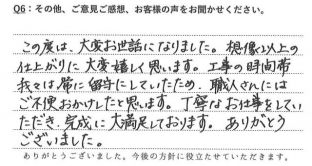 Q6：その他、ご意見ご感想、お客様の声をお聞かせください。
この度は、大変お世話になりました。想像以上の
仕上がりに大変嬉しく思います。工事の時間帯
我々は常に留守にしていたため、職人さんには
ご不便おかけしたと思います。丁寧なお仕事をしてい
ただき、完成に大満足しております。ありがとう
ございました。
ありがとうございました。今後の方針に役立たせていただきます。